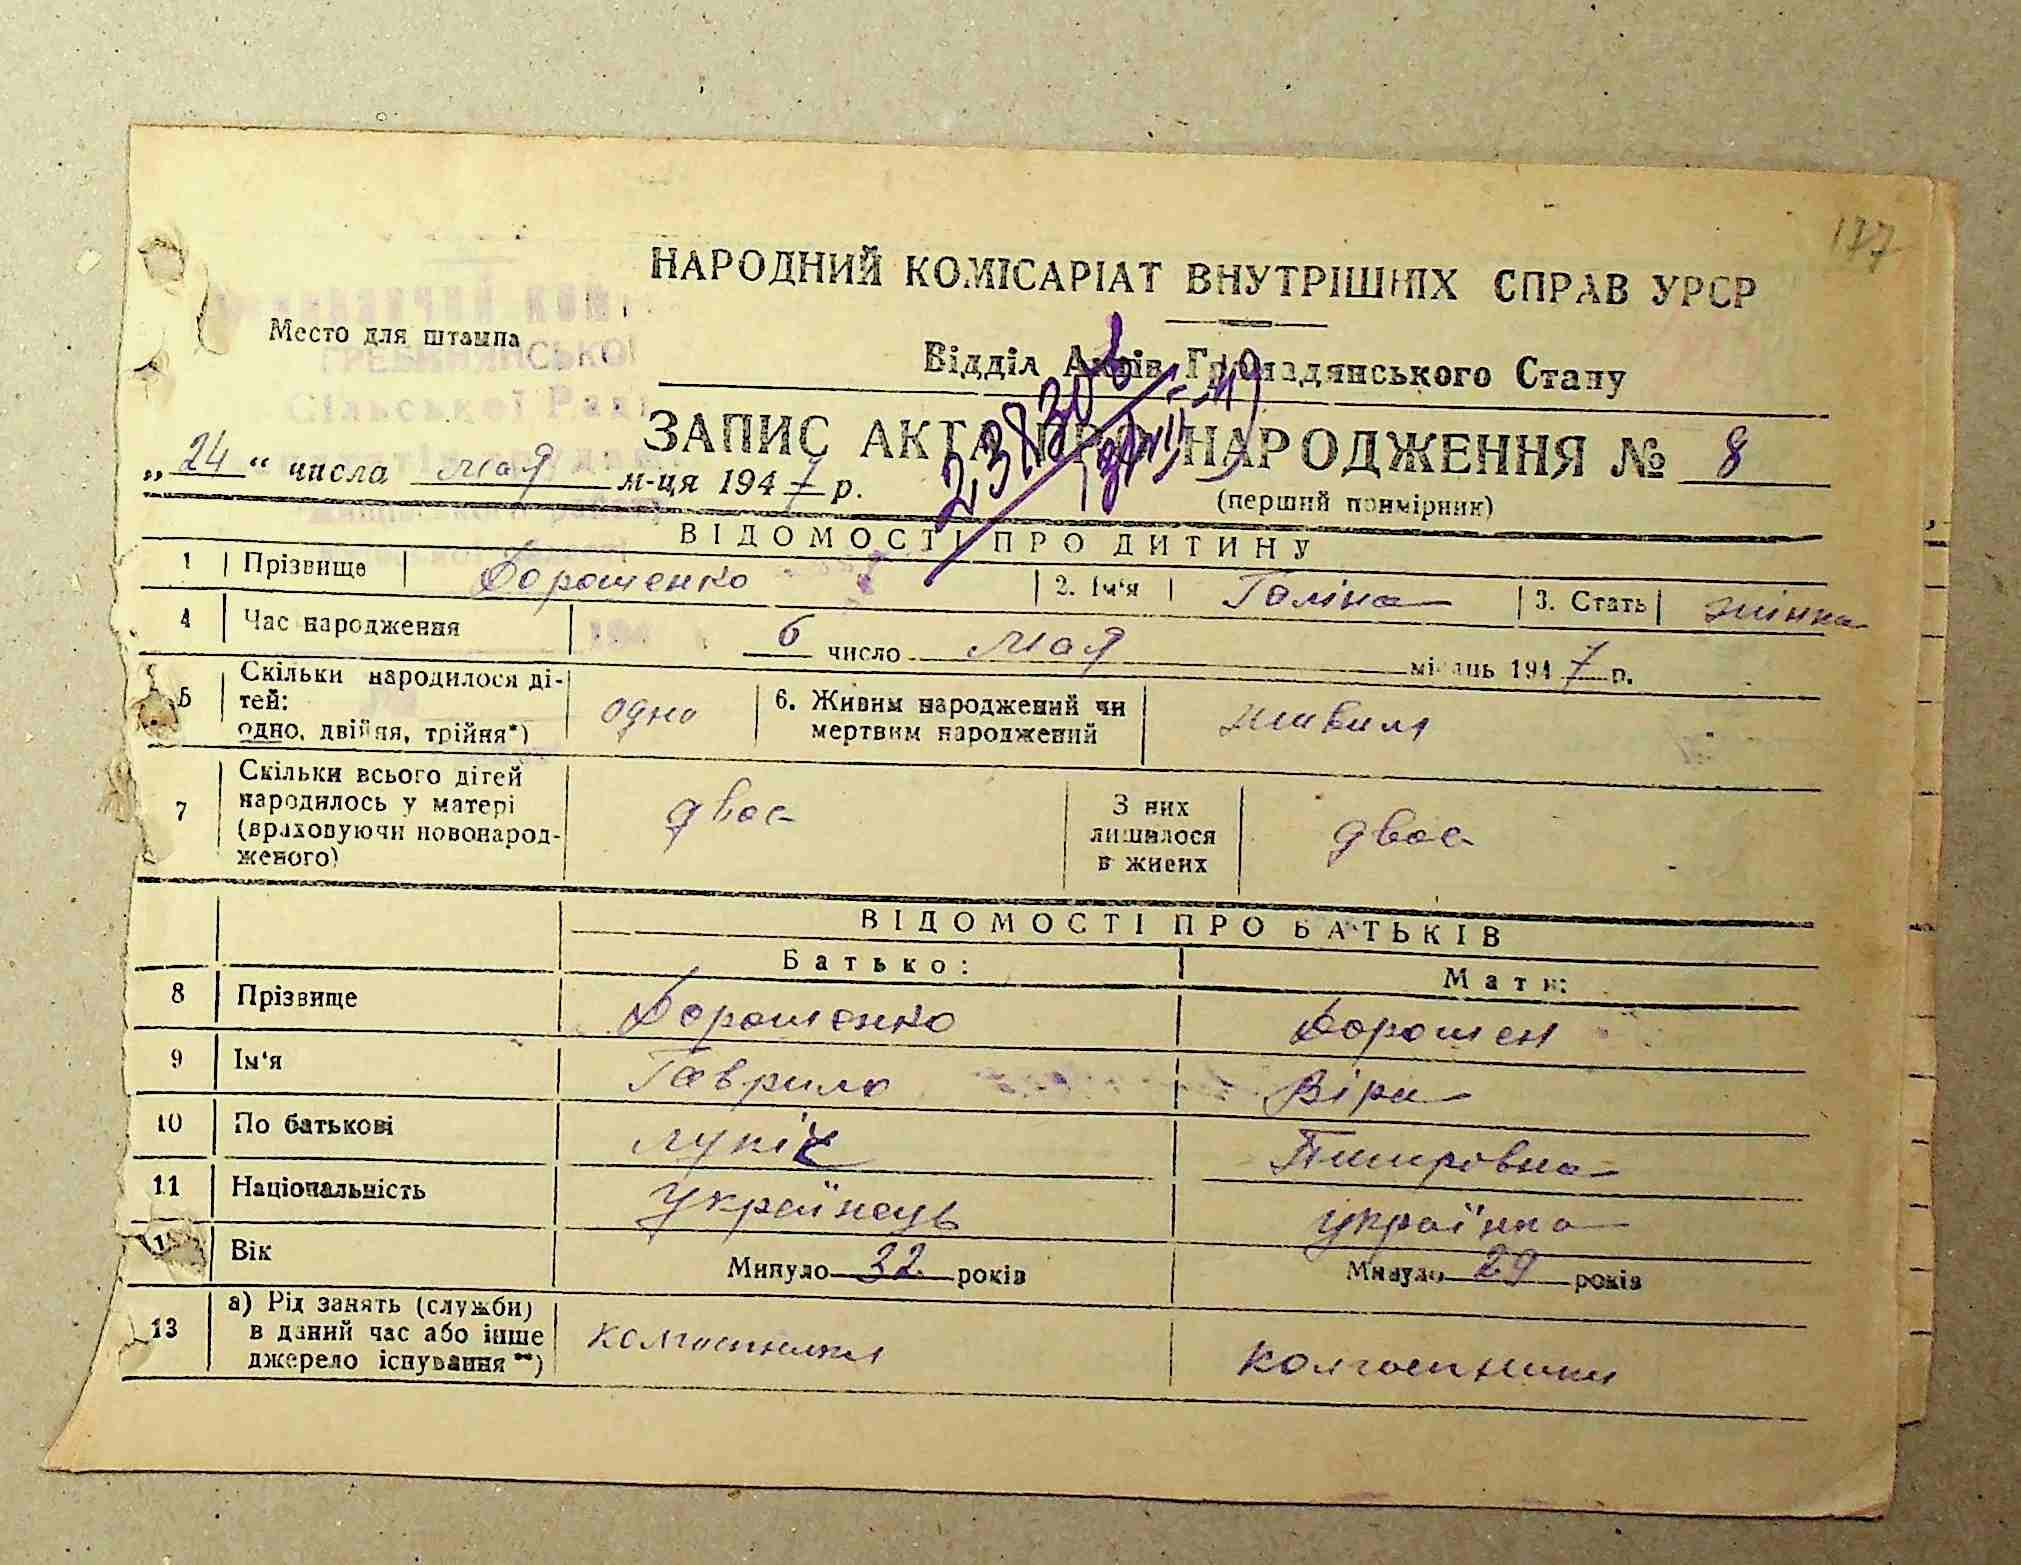 177
НАРОДНИЙ КОМІСАРІАТ ВНУТРІШНІХ СПРАВ УРСР
Место для штампа
ГРЕБИНЯНСЬКОЇ
Сільської Ради
Відділ Актів Громадянського Стану
ЗАПИС АКТА ПРО НАРОДЖЕННЯ № 8
„24“ числа мая м-ця 1947 р.
(перший примірник)
ВІДОМОСТІ ПРО ДИТИНУ
1 Прізвище Дорошенко 2. Ім'я Галіна 3. Стать жінка
4 Час народження 6 число мая місяць 1947 р.
5 Скільки народилося ді-
тей:
одно, двійня, трійня*) одно 6. Живим народжений чи
мертвим народжений живим
7 Скільки всього дітей
народилось у матері
(враховуючи новонарод-
женого) двое З них
лишилося
в живих двое
ВІДОМОСТІ ПРО БАТЬКІВ
Батько: Мати:
8 Прізвище Дорошенко Дорошен
9 Ім'я Гаврило Віра
10 По батькові
11 Національність українець українка
Вік Минуло 32 років Минуло 29 років
13 а) Рід занять (служби)
в даний час або інше
джерело існування**) колгоспники колгоспники